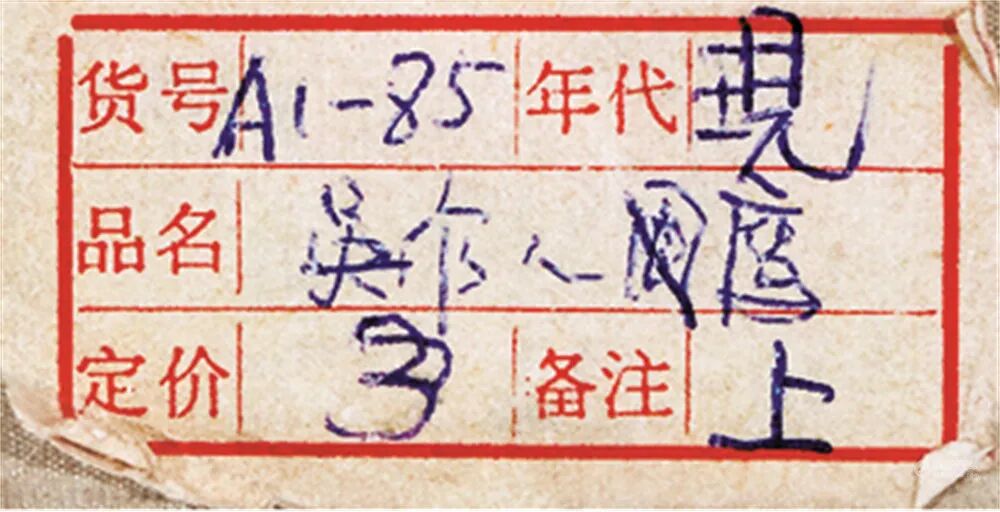 货号 A1-85 年代 現
品名 吴作人 鹰
定价 3 备注 上